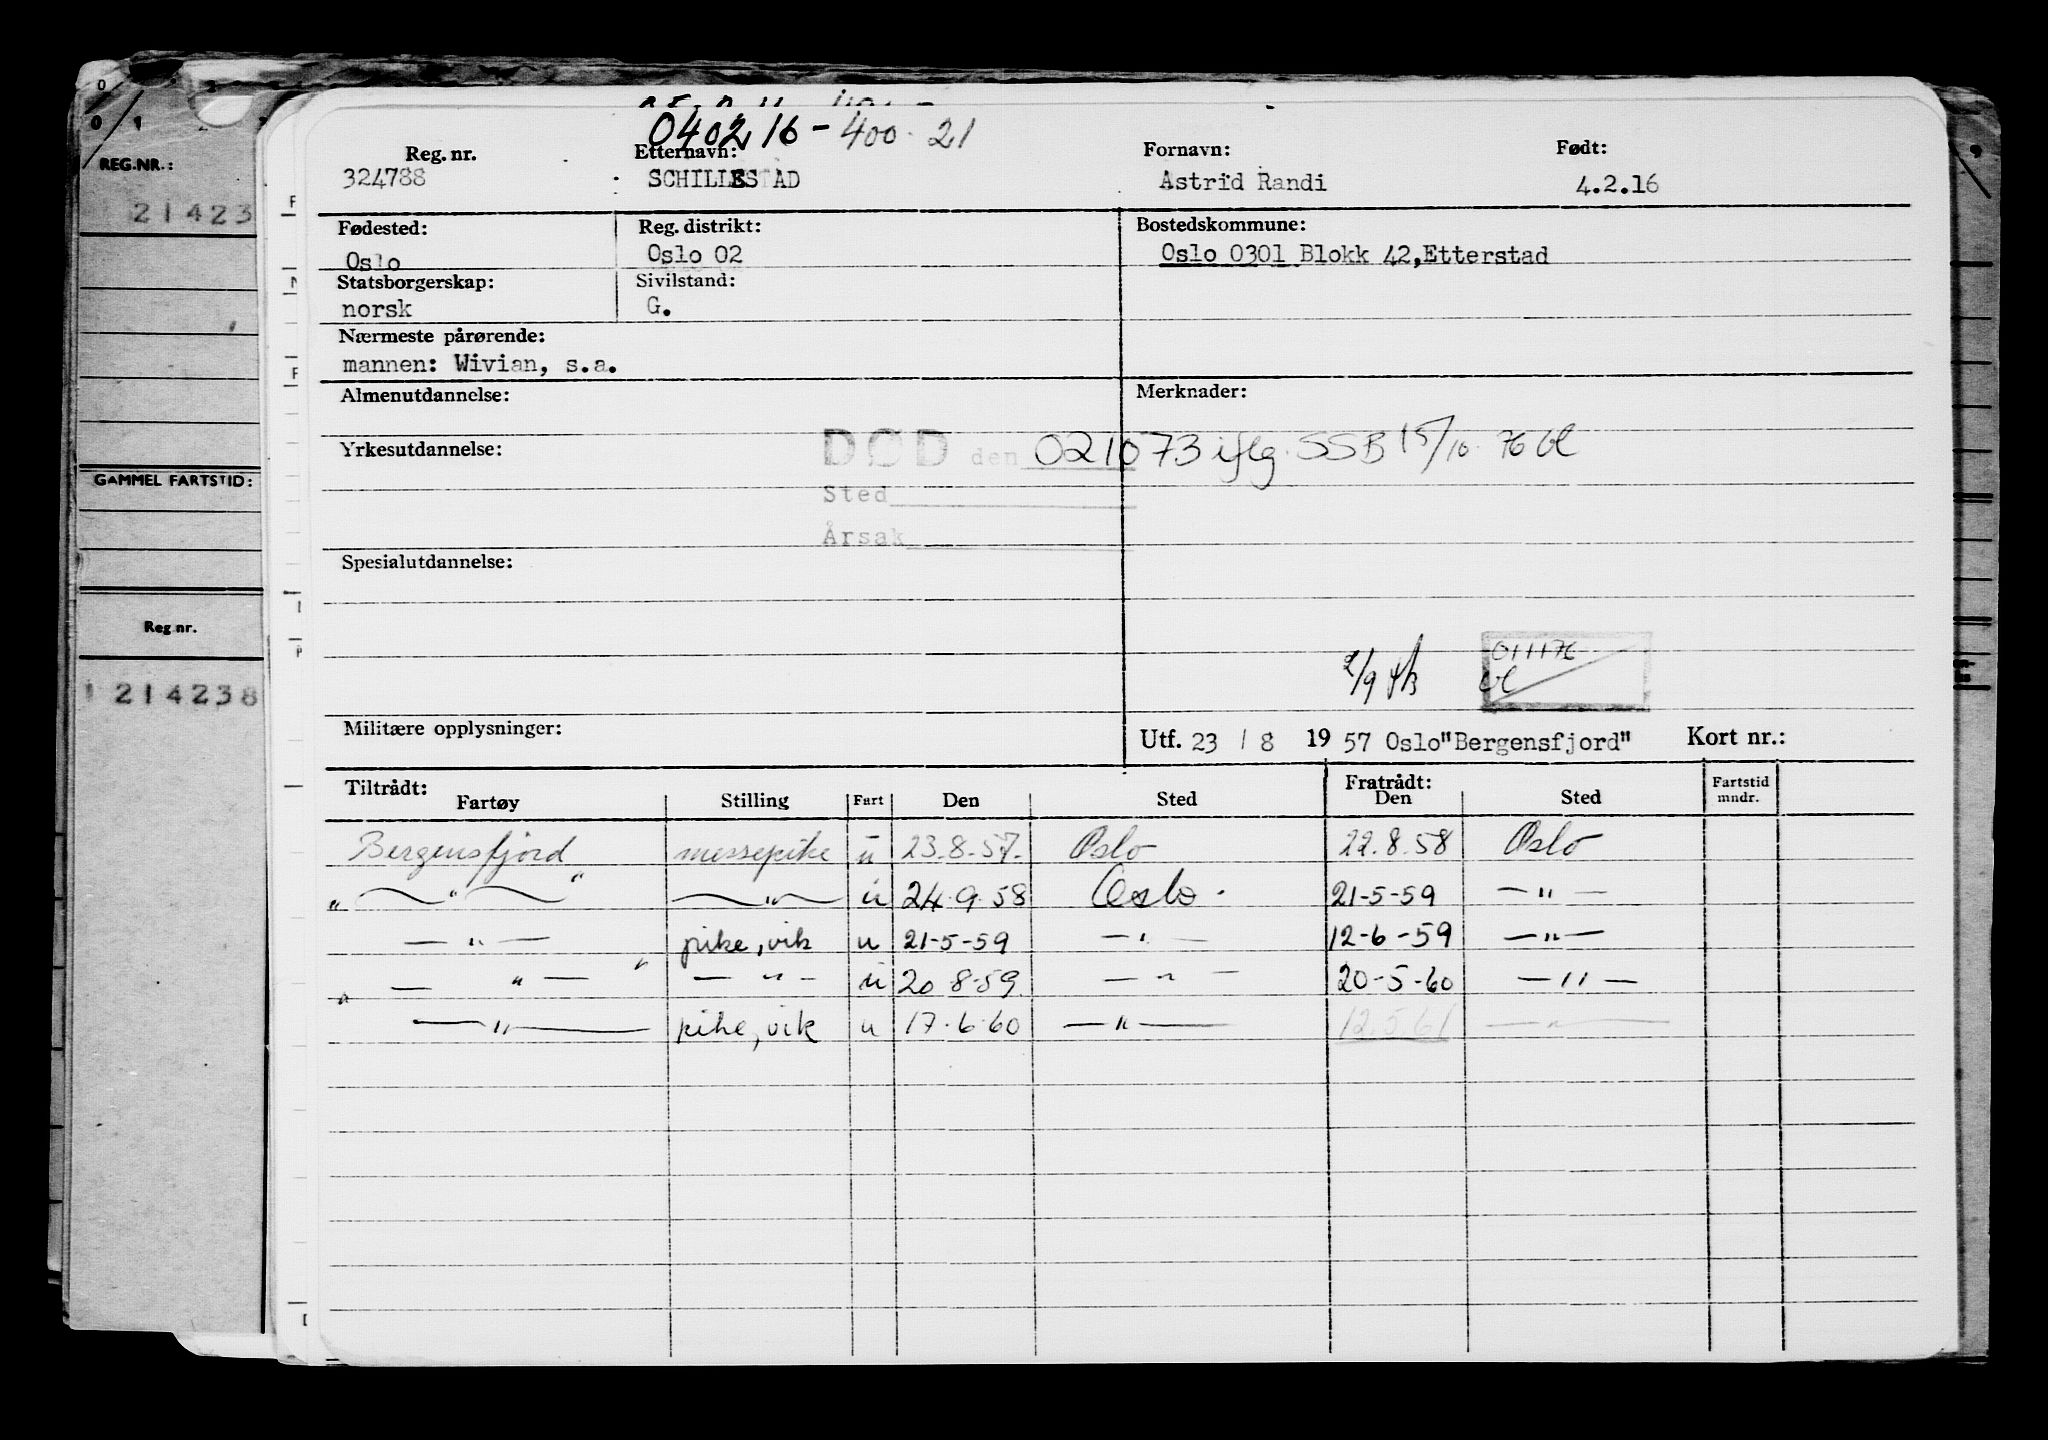 040216-400-21
Reg. nr. Etternavn: Fornavn: Født:
324788 SCHILLESTAD Astrid Randi 4.2.16
Fødested: Reg. distrikt: Bostedskommune:
Oslo Oslo 02 Oslo 0301 Blokk 42,Etterstad
Statsborgerskap: Sivilstand:
norsk G.
Nærmeste pårørende:
mannen: Wivian, s.a.
Almenutdannelse: Merknader:
Yrkesutdannelse: DØD den 021073 iflg. SSB 15/10-76 Ul
Sted
Årsak
Spesialutdannelse:
2/9 011176
Ul
Militære opplysninger: Utf. 23 / 8 19 57 Oslo"Bergensfjord" Kort nr.:
Tiltrådt: Fratrådt:
Fartøy Stilling Fart Den Sted Den Sted Fartstid mndr.
Bergensfjord messepike u 23.8.57. Oslo 22.8.58 Oslo
" " " " u 24.9.58 Oslo. 21-5-59 — " —
— " — pike, vik u 21-5-59 — " — 12-6-59 — " —
" — " — " — " — u 20 8-59 — " — 20-5-60 — " —
— " — pike, vik u 17.6.60 — " — 12.5.61 — " —
REG.NR.:
21423
GAMMEL FARTSTID:
Reg nr.
214238